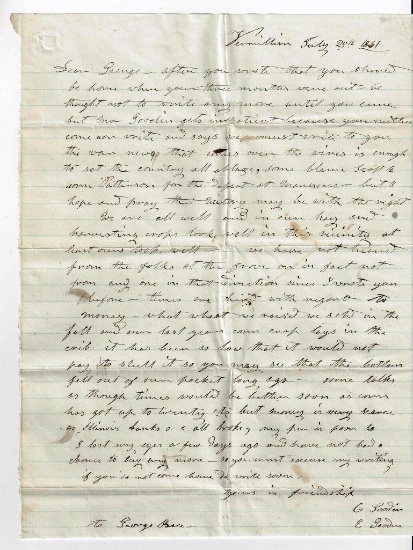 Vermillion July 28th 1861
Dear George - after you wrote that you should
be home when your three months were out we
thought not to write any more until you came
but Mr Goodin gets impatient because you neither
come nor write and says we must write to you
the war news that comes over the wires is enough
to set the country all ablaze some blame Scott &
some Patterson for the defeat at Manassas - but I
hope and pray the victory may be with the right
We are all well and in our hay and
harvesting crops look well in this vicinity at
least ours look well - we have not heard
from the folks at the grove or in fact not
from any one in that direction since I wrote you
before - times are hard with regard to
money - what wheat we raised we sold in the
fall and our last years corn crop lays in the
crib it has been so low that it would not
pay to shell it so you may see that the bottom
fell out of our pocket long ago - some talks
as though times would be better soon as corn
has got up to twenty cts but money is very scarce
as Illinois banks are all broke, my pen is poor &
I lost my eyes a few days ago and have not had a
chance to buy any more so you must excuse my writing
if you do not come home do write soon
yours in friendship
E Goodin
to George